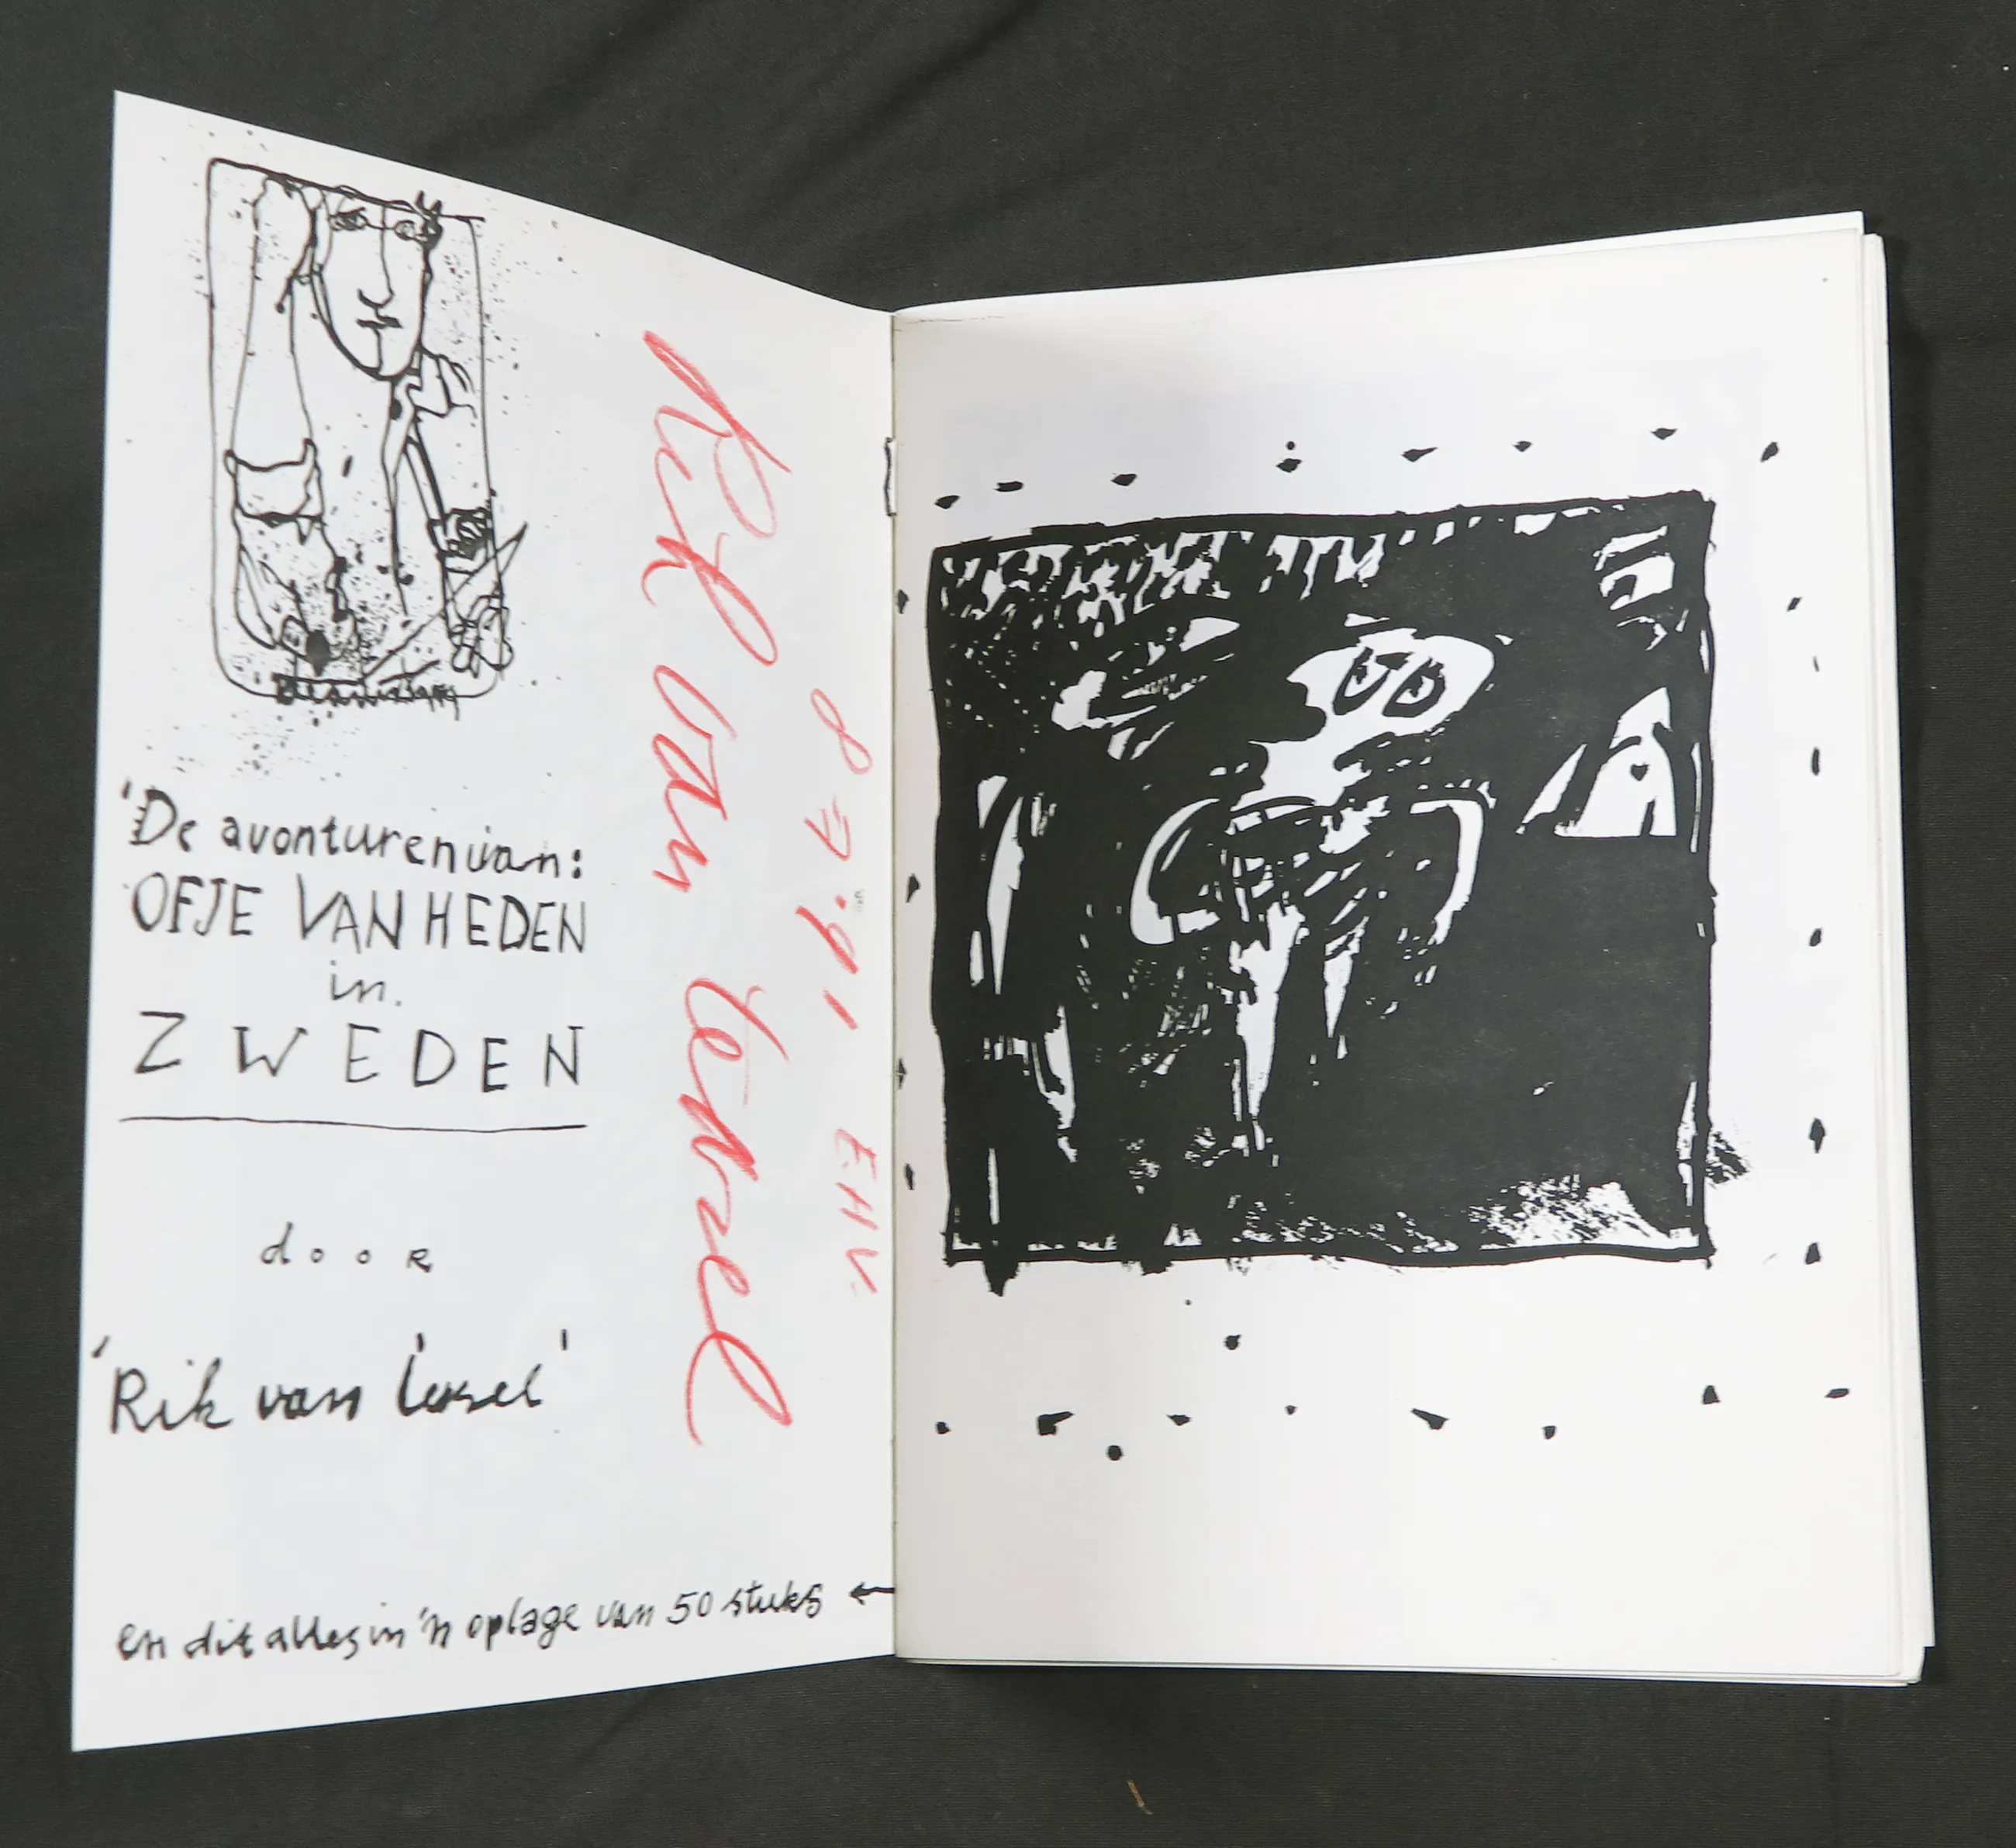 'De avonturen van:
OFJE VAN HEDEN
in.
ZWEDEN
dooR
'Rik van Iersel'
en dit alles in 'n oplage van 50 stuks ←
Rik van Iersel
8 7 '91 EHV.